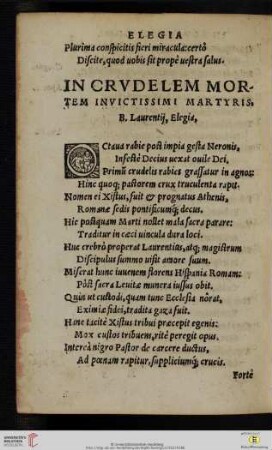 ELEGIA
Plurima conspicitis fieri miracula: certò
Discite, quod uobis sit propè uestra salus.
IN CRVDELEM MOR-
TEM INVICTISSIMI MARTYRIS,
B. Laurentij, Elegia,
OCtaua rabie post impia gesta Neronis,
Infestè Decius uexat ouile Dei,
Primũ crudelis rabies grassatur in agnos:
Hinc quoq; pastorem crux truculenta rapit.
Nomen ei Xistus, fuit & prognatus Athenis,
Romanæ sedis pontificumq; decus.
Hic postquam Marti nollet mala sacra parare:
Traditur in cæci uincula dura loci.
Huc crebrò properat Laurentius, atq; magistrum
Discipulus summo uisit amore suum.
Miserat hunc iuuenem florens Hispania Romam:
Pòst sacra Leuitæ munera iussus obit.
Quin ut custodi, quam tunc Ecclesia nôrat,
Eximiæ fidei, tradita gaza fuit.
Hanc tacitè Xistus tribui præcepit egenis:
Mox custos tribuem, ritè peregit opus.
Intereà nigro Pastor de carcere ductus,
Ad pœnam rapitur, suppliciumq; crucis.
Fortè